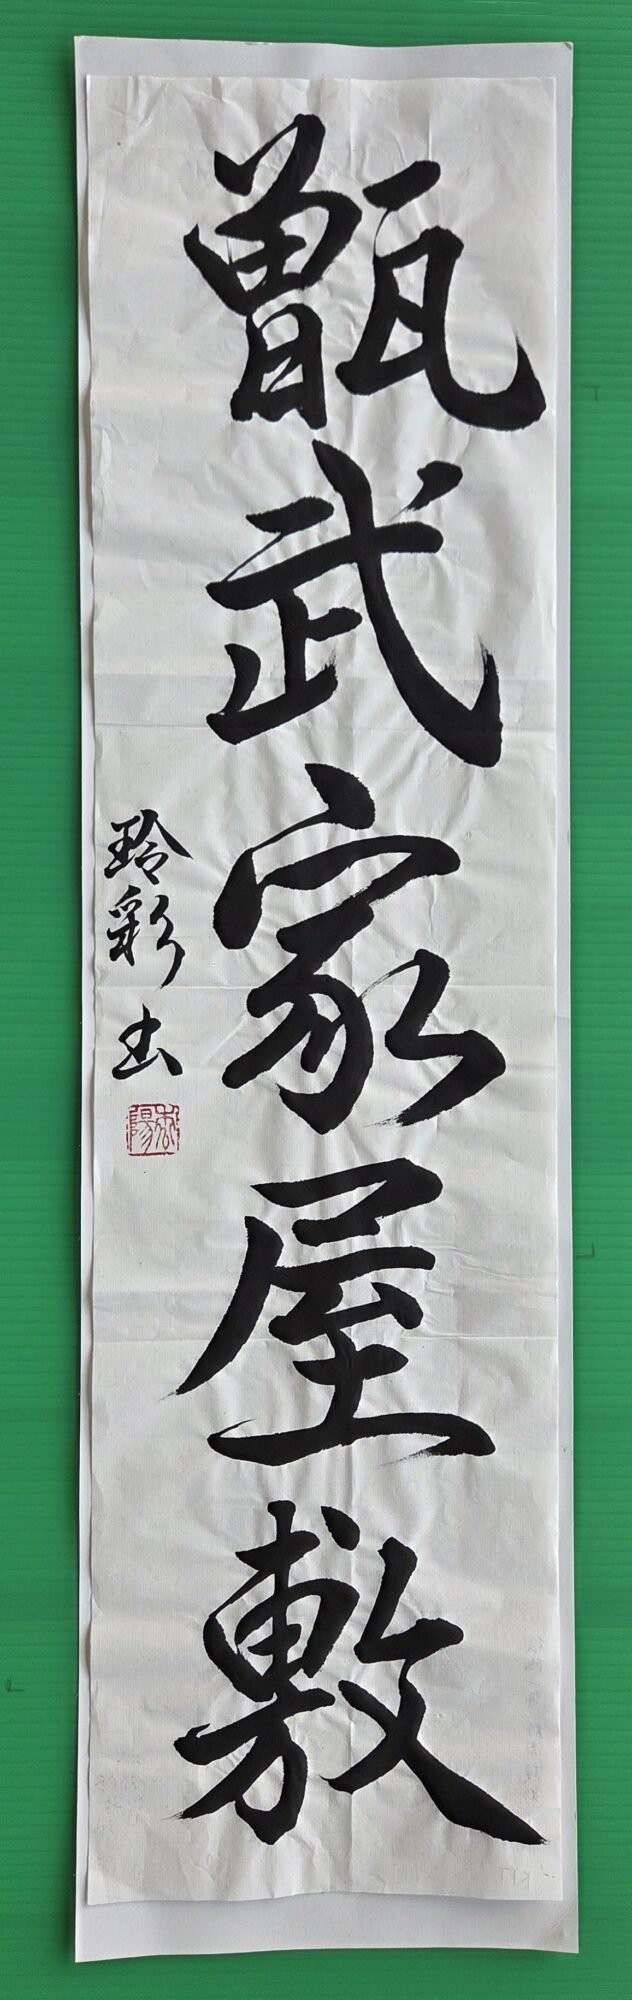 甑武家屋敷
玲彩書